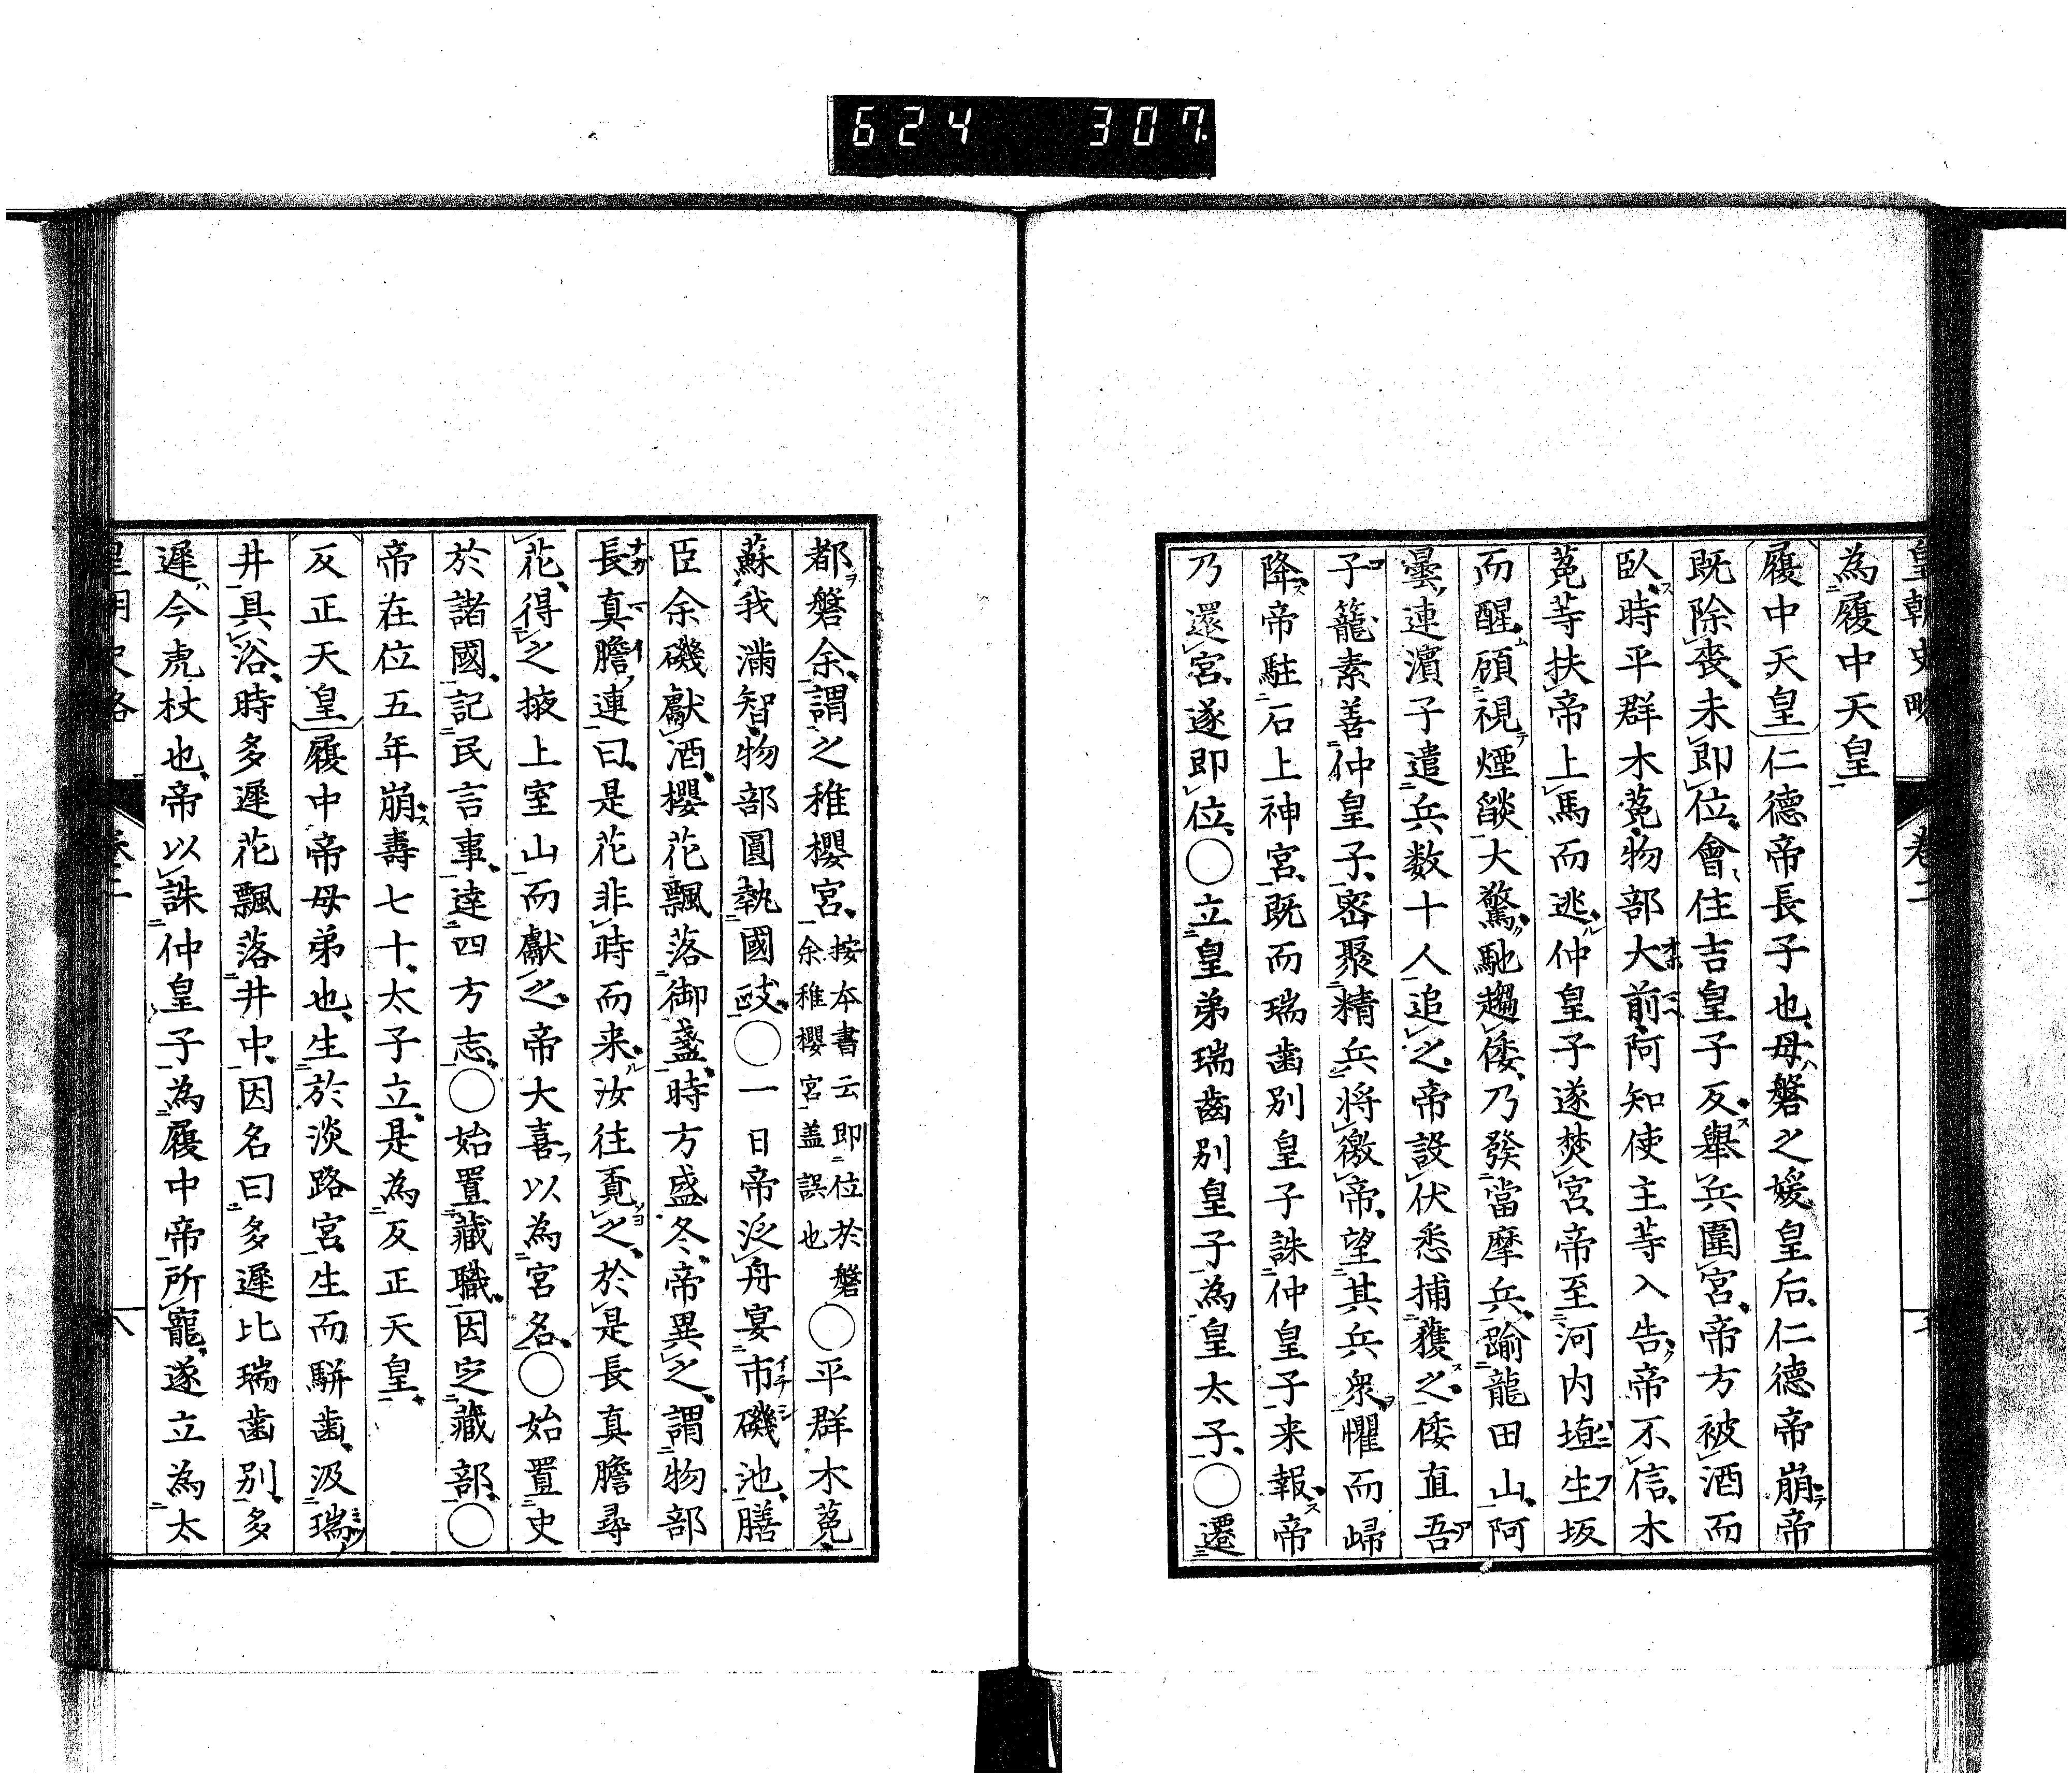 624 307
皇朝史略 卷二
為履中天皇
履中天皇仁德帝長子也母磐之媛皇后仁德帝崩帝
既除喪未即位會住吉皇子反舉兵圍宮帝方被酒而
臥時平群木菟物部大前阿知使主等入告帝不信木
菟等扶帝上馬而逃仲皇子遂焚宮帝至河内埴生坂
而醒顧視煙燄大驚馳趨倭乃發當摩兵踰龍田山阿
曇連濱子遣兵数十人追之帝設伏悉捕獲之倭直吾
子籠素善仲皇子密聚精兵将徼帝望其兵衆懼而歸
降帝駐石上神宮既而瑞齒別皇子誅仲皇子来報帝
乃還宮遂即位〇立皇弟瑞齒別皇子為皇太子〇遷
都磐余謂之稚櫻宮按本書云即位於磐余稚櫻宮蓋誤也〇平群木菟
蘇我滿智物部圓執國政〇一日帝泛舟宴市磯池膳
臣余磯獻酒櫻花飄落御盞時方盛冬帝異之謂物部
長真膽連曰是花非時而来汝往覓之於是長真膽尋
花得之掖上室山而獻之帝大喜以為宮名〇始置史
於諸國記民言事達四方志〇始置藏職因定藏部〇
帝在位五年崩壽七十太子立是為反正天皇
反正天皇履中帝母弟也生於淡路宮生而駢齒汲瑞
井具浴時多遲花飄落井中因名曰多遲比瑞齒別多
遲今虎杖也帝以誅仲皇子為履中帝所寵遂立為太
八